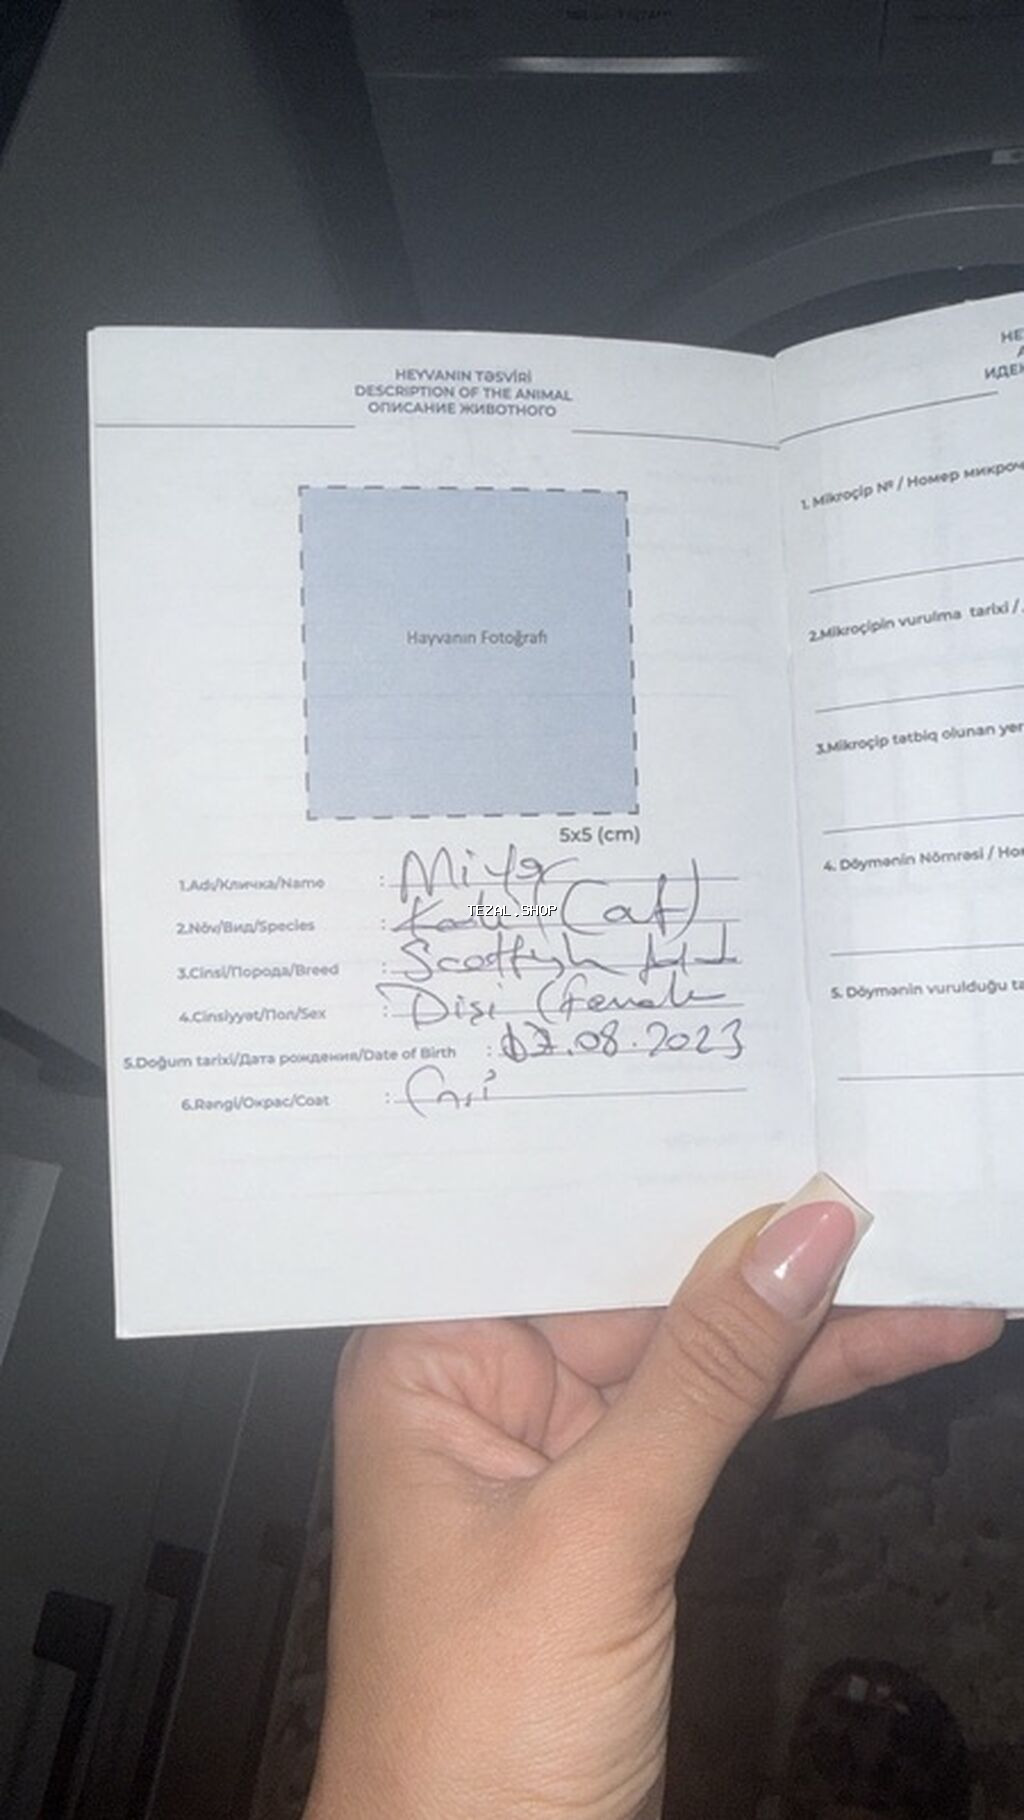 HEYVANIN TƏSVİRİ
DESCRIPTION OF THE ANIMAL
ОПИСАНИЕ ЖИВОТНОГО
Hayvanın Fotoğrafı
5x5 (cm)
1.Adı/Кличка/Name :
2.Növ/Вид/Species : (cat)
TEZAL.SHOP
3.Cinsi/Порода/Breed : Scottish
4.Cinsiyyət/Пол/Sex : Dişi (female
5.Doğum tarixi/Дата рождения/Date of Birth : 07.08.2023
6.Rəngi/Окрас/Coat :
HE
ИДЕН
1. Mikroçip № / Номер микроч
2.Mikroçipin vurulma tarixi /
3.Mikroçip tətbiq olunan yer
4. Döymənin Nömrəsi / Но
5. Döymənin vurulduğu ta